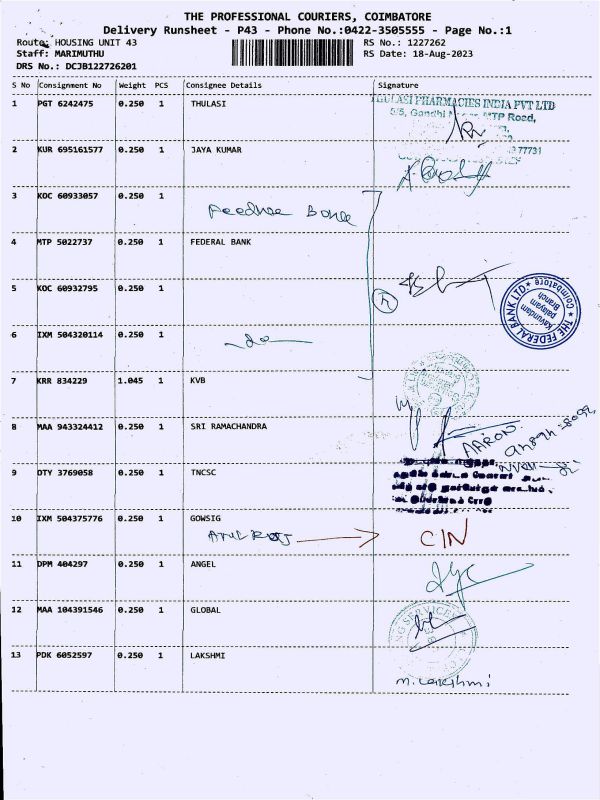 THE PROFESSIONAL COURIERS, COIMBATORE
Delivery Runsheet - P43 - Phone No.:0422-3505555 - Page No.:1
Route: HOUSING UNIT 43
RS No.: 1227262
Staff: MARIMUTHU
RS Date: 18-Aug-2023
DRS No.: DCJB122726201
S No Consignment No Weight PCS Consignee Details Signature
1 PGT 6242475 0.250 1 THULASI
THULASI PHARMACIES INDIA PVT LTD
5/5, Gandhi MTP Road,
77731
2 KUR 695161577 0.250 1 JAYA KUMAR
3 KOC 60933057 0.250 1
4 MTP 5022737 0.250 1 FEDERAL BANK
5 KOC 60932795 0.250 1
THE FEDERAL BANK LTD.
Coimbatore
Kavundam
palayam
Branch
6 IXM 504320114 0.250 1
7 KRR 834229 1.045 1 KVB
8 MAA 943324412 0.250 1 SRI RAMACHANDRA
AARON
9 DTY 3769058 0.250 1 TNCSC
10 IXM 504375776 0.250 1 GOWSIG
CIN
11 DPM 404297 0.250 1 ANGEL
12 MAA 104391546 0.250 1 GLOBAL
13 PDK 6052597 0.250 1 LAKSHMI
M. Lakshmi